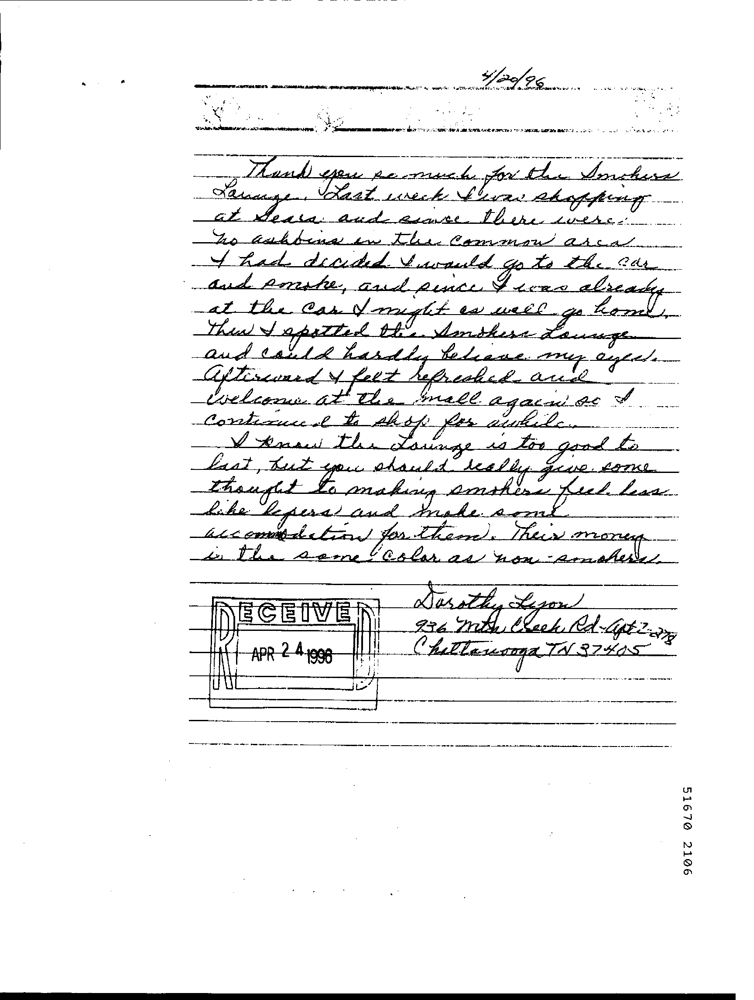 4/20/96
Thank you so much for the Smokers
Lounge. Last week I was shopping
at Sears and since there were
no ashbins in the common area
I had decided I would go to the car
and smoke, and since I was already
at the car I might as well go home.
Then I spotted the Smokers Lounge
and could hardly believe my eyes.
Afterward I felt refreshed and
welcome at the mall again so I
continued to shop for awhile.
I know the Lounge is too good to
last, but you should really give some
thought to making smokers feel less
like lepers and make some
accommodation for them. Their money
is the same color as non-smokers.
Dorothy Lyon
936 Mtn Creek Rd-Apt 2-278
Chattanooga TN 37405
RECEIVED
APR 24 1996
51670 2106